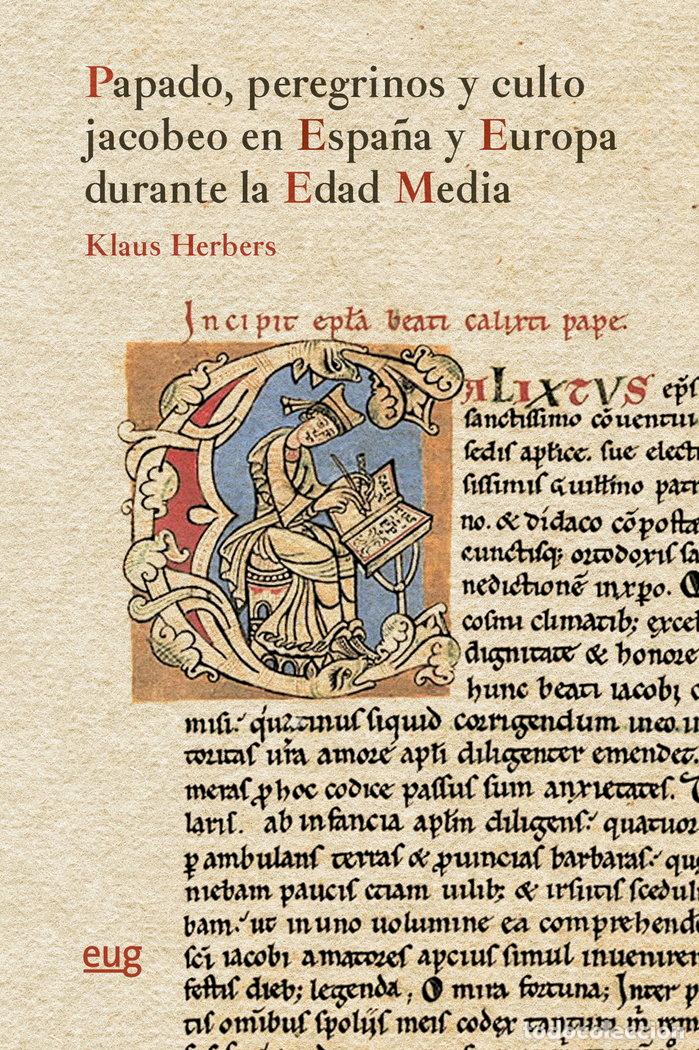 Papado, peregrinos y culto
jacobeo en España y Europa
durante la Edad Media
Klaus Herbers
Incipit epła beati calixti pape.
CALIXTVS ep̃s
sanctissimo cōuentui
sedis aplice. sue electi
sissimis Guillmo patr
no. & didaco cōposta
cunctisq; ortodoxis sa
nedictionē inxpo.
cosmi climatib; excel
dignitate & honore
hunc beati iacobi c
misi. quatinus siquid corrigendum ineo in
toritas ur̃a amore apłi diligenter emendet.
meras ꝓ hoc codice passus sum anxietates.
laris. ab infancia aplm diligens. quatuor
ꝑambulans terras & ꝓuincias barbaras. que
niebam paucis cciam uilib; & irsutis scedul
bam. ut in uno uolumine ea comprehende
sc̃i iacobi amatores apcius simul inuenirent
festis dieb; legenda, O mira fortuna; Inter p
tis omĩbus spolijs meis codex tantum m̃ rem
eug
todocoleccion